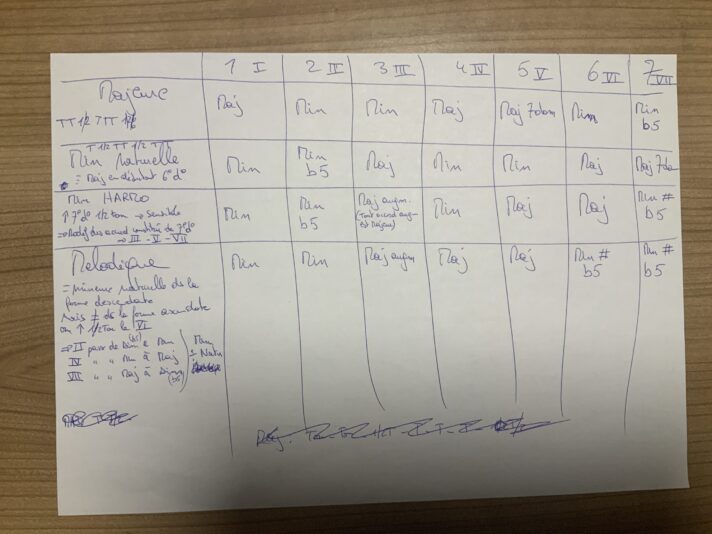 1 I 2 II 3 III 4 IV 5 V 6 VI 7 VII
Majeure
TT 1/2 TTT 1/2
Maj Min Min Maj Maj 7dom Min Min b5
T 1/2 TT 1/2 TTT
Min Naturelle
= Maj en débutant 6°d°
Min Min b5 Maj Min Min Maj Maj 7dom
Min HARMO
↑ 7°d° 1/2 ton → Sensible
⇒ Modif des accord constitué du 7°d°
⇒ III - V - VII
Min Min b5 Maj augm. (Tout accord augm est Majeur) Min Maj Maj Min # b5
Melodique
= mineure naturelle ds la
forme descendate
Mais ≠ ds la forme ascendate
on ↑ 1/2 Ton le VI
⇒ II passe de Dim (b5) à Min
IV " " Min à Maj
VII " " Maj à Dim (b5)
Min
Min Min Maj augm Maj Maj Min # b5 Min # b5